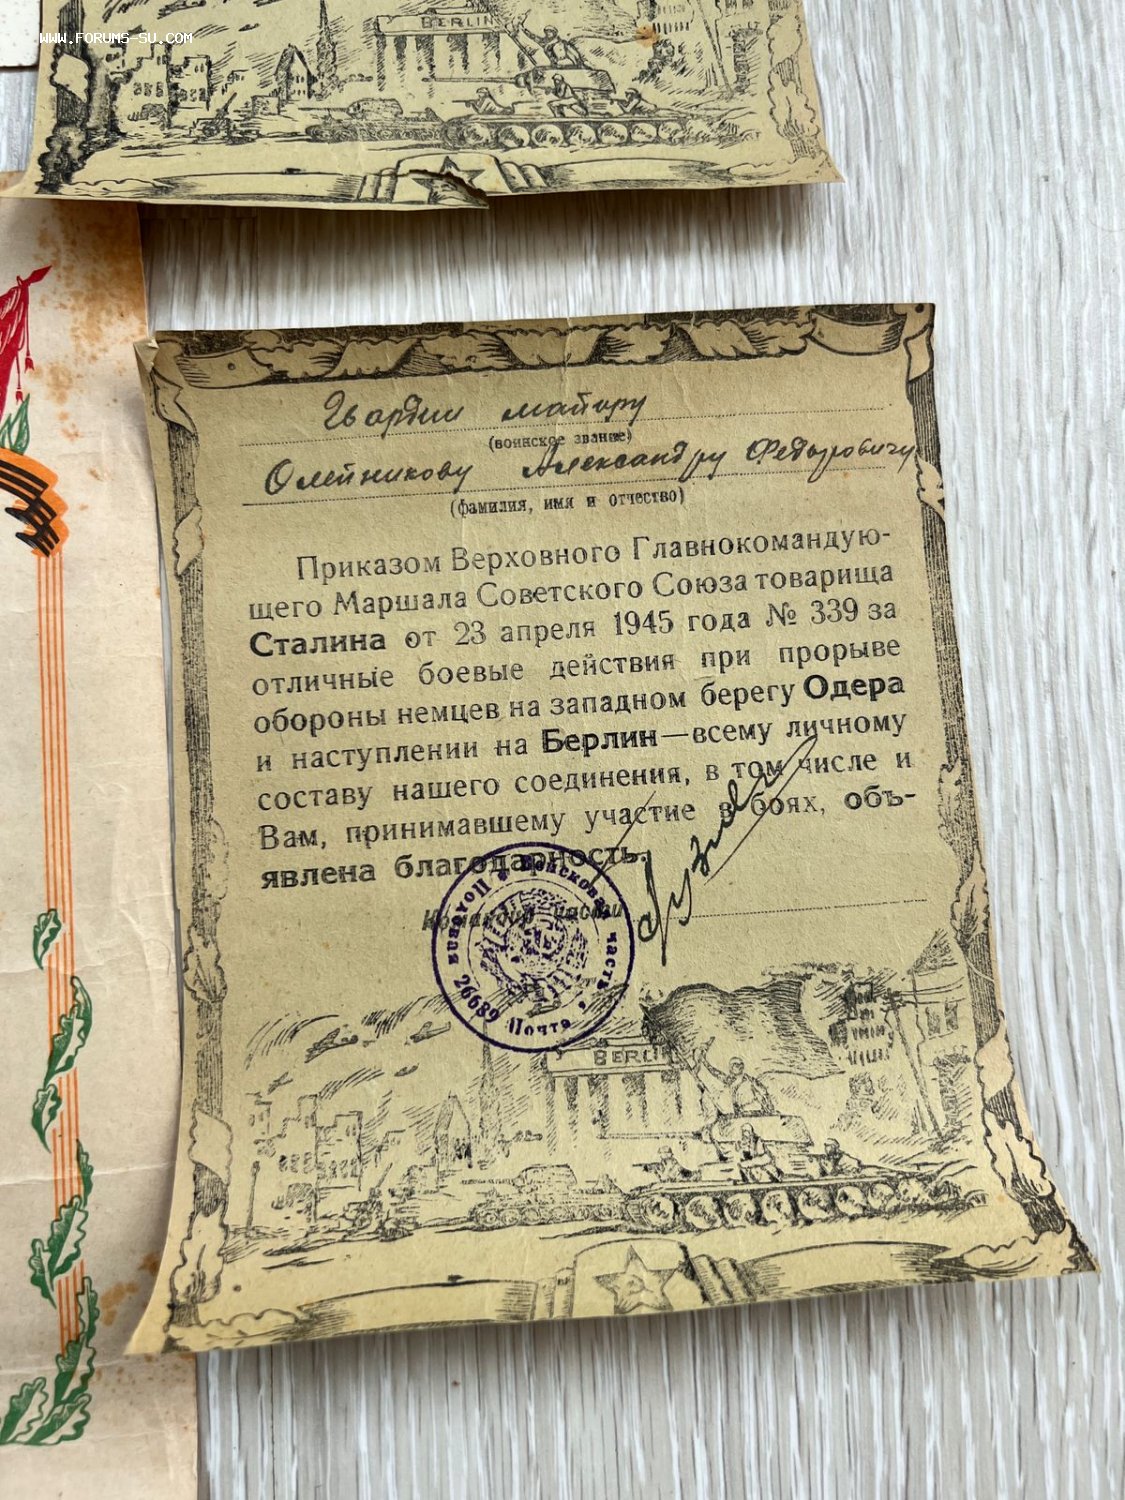 WWW.FORUMS-SU.COM
BERLIN
Гвардии майору
(воинское звание)
Олейникову Александру Федоровичу
(фамилия, имя и отчество)
Приказом Верховного Главнокомандую-
щего Маршала Советского Союза товарища
Сталина от 23 апреля 1945 года № 339 за
отличные боевые действия при прорыве
обороны немцев на западном берегу Одера
и наступлении на Берлин—всему личному
составу нашего соединения, в том числе и
Вам, принимавшему участие в боях, объ-
явлена благодарность.
Командир части
Войсковая часть Полевая Почта 26689
BERLIN